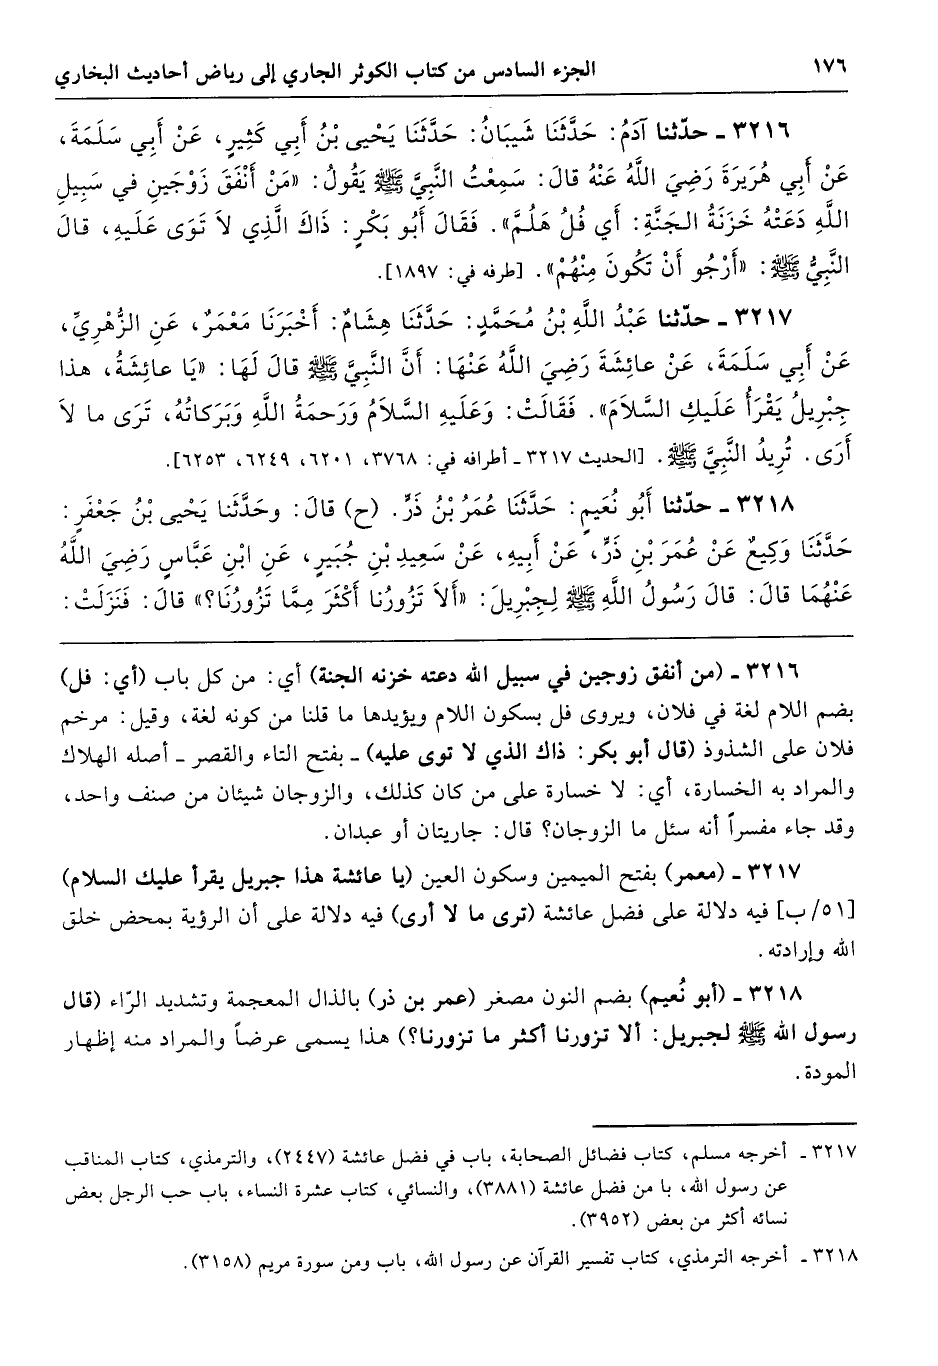 ١٧٦ الجزء السادس من كتاب الكوثر الجاري إلى رياض أحاديث البخاري
٣٢١٦ ـ حدّثنا آدَمُ: حَدَّثَنَا شَيبَانُ: حَدَّثَنَا يَحْيى بْنُ أَبِي كَثِيرٍ، عَنْ أَبِي سَلَمَةَ،
عَنْ أَبِي هُرَيرَةَ رَضِيَ اللَّهُ عَنْهُ قالَ: سَمِعْتُ النَّبِيَّ ﷺ يَقُولُ: «مَنْ أَنْفَقَ زَوْجَينِ في سَبِيلِ
اللَّهِ دَعَتْهُ خَزَنَةُ الجَنَّةِ: أَي فُلُ هَلُمَّ». فَقَالَ أَبُو بَكْرٍ: ذَاكَ الَّذِي لاَ تَوَى عَلَيهِ، قالَ
النَّبِيُّ ﷺ: «أَرْجُو أَنْ تَكُونَ مِنْهُمْ». [طرفه في: ١٨٩٧].
٣٢١٧ ـ حدّثنا عَبْدُ اللَّهِ بْنُ مُحَمَّدٍ: حَدَّثَنَا هِشَامٌ: أَخْبَرَنَا مَعْمَرٌ، عَنِ الزُّهْرِيِّ،
عَنْ أَبِي سَلَمَةَ، عَنْ عائِشَةَ رَضِيَ اللَّهُ عَنْهَا: أَنَّ النَّبِيَّ ﷺ قالَ لَهَا: «يَا عائِشَةُ، هذا
جِبْرِيلُ يَقْرَأُ عَلَيكِ السَّلاَمَ». فَقَالَتْ: وَعَلَيهِ السَّلاَمُ وَرَحمَةُ اللَّهِ وَبَرَكاتُهُ، تَرَى ما لاَ
أَرَى. تُرِيدُ النَّبِيَّ ﷺ. [الحديث ٣٢١٧ ـ أطرافه في: ٣٧٦٨، ٦٢٠١، ٦٢٤٩، ٦٢٥٣].
٣٢١٨ ـ حدّثنا أَبُو نُعَيمٍ: حَدَّثَنَا عُمَرُ بْنُ ذَرٍّ. (ح) قالَ: وحَدَّثَنا يَحْيى بْنُ جَعْفَرٍ:
حَدَّثَنَا وَكِيعٌ عَنْ عُمَرَ بْنِ ذَرٍّ، عَنْ أَبِيهِ، عَنْ سَعِيدِ بْنِ جُبَيرٍ، عَنِ ابْنِ عَبَّاسٍ رَضِيَ اللَّهُ
عَنْهُمَا قالَ: قالَ رَسُولُ اللَّهِ ﷺ لِجِبْرِيلَ: «أَلاَ تَزُورُنا أَكْثَرَ مِمَّا تَزُورُنَا؟» قالَ: فَنَزَلَتْ:
٣٢١٦ ـ (من أنفق زوجين في سبيل الله دعته خزنه الجنة) أي: من كل باب (أي: فل)
بضم اللام لغة في فلان، ويروى فل بسكون اللام ويؤيدها ما قلنا من كونه لغة، وقيل: مرخم
فلان على الشذوذ (قال أبو بكر: ذاك الذي لا توى عليه) ـ بفتح التاء والقصر ـ أصله الهلاك
والمراد به الخسارة، أي: لا خسارة على من كان كذلك، والزوجان شيئان من صنف واحد،
وقد جاء مفسراً أنه سئل ما الزوجان؟ قال: جاريتان أو عبدان.
٣٢١٧ ـ (معمر) بفتح الميمين وسكون العين (يا عائشة هذا جبريل يقرأ عليك السلام)
[٥١/ب] فيه دلالة على فضل عائشة (ترى ما لا أرى) فيه دلالة على أن الرؤية بمحض خلق
الله وإرادته.
٣٢١٨ ـ (أبو نُعيم) بضم النون مصغر (عمر بن ذر) بالذال المعجمة وتشديد الرّاء (قال
رسول الله ﷺ لجبريل: ألا تزورنا أكثر ما تزورنا؟) هذا يسمى عرضاً والمراد منه إظهار
المودة.
٣٢١٧ ـ أخرجه مسلم، كتاب فضائل الصحابة، باب في فضل عائشة (٢٤٤٧)، والترمذي، كتاب المناقب
عن رسول الله، با من فضل عائشة (٣٨٨١)، والنسائي، كتاب عشرة النساء، باب حب الرجل بعض
نسائه أكثر من بعض (٣٩٥٢).
٣٢١٨ ـ أخرجه الترمذي، كتاب تفسير القرآن عن رسول الله، باب ومن سورة مريم (٣١٥٨).